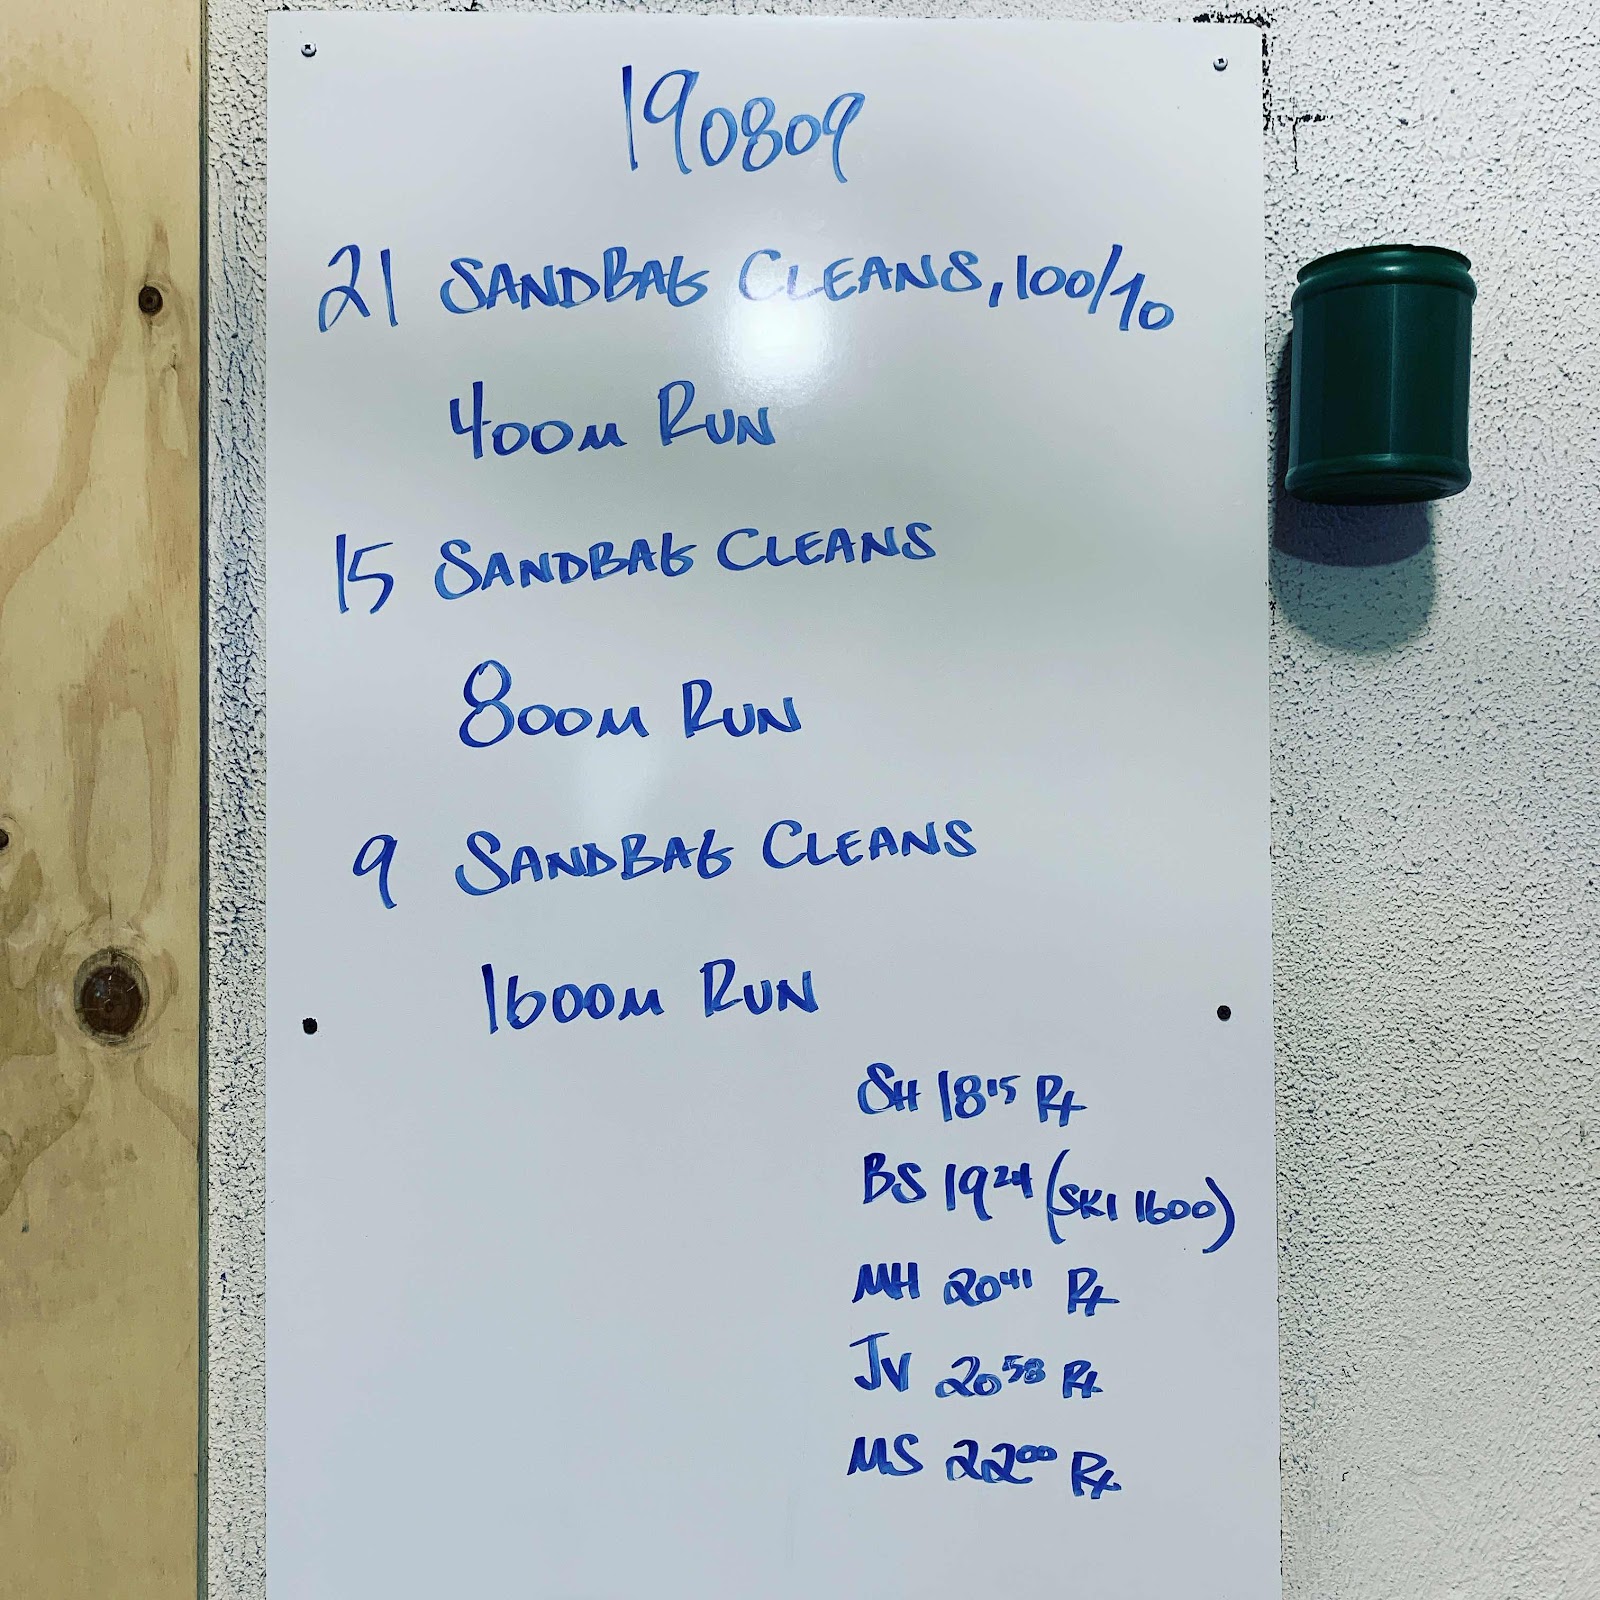 190809
21 SANDBAG CLEANS, 100/70
400M RUN
15 SANDBAG CLEANS
800M RUN
9 SANDBAG CLEANS
1600M RUN
SH 18 15 Rx
BS 19 24 (SKI 1600)
MH 20 41 Rx
JV 20 58 Rx
MS 22 00 Rx